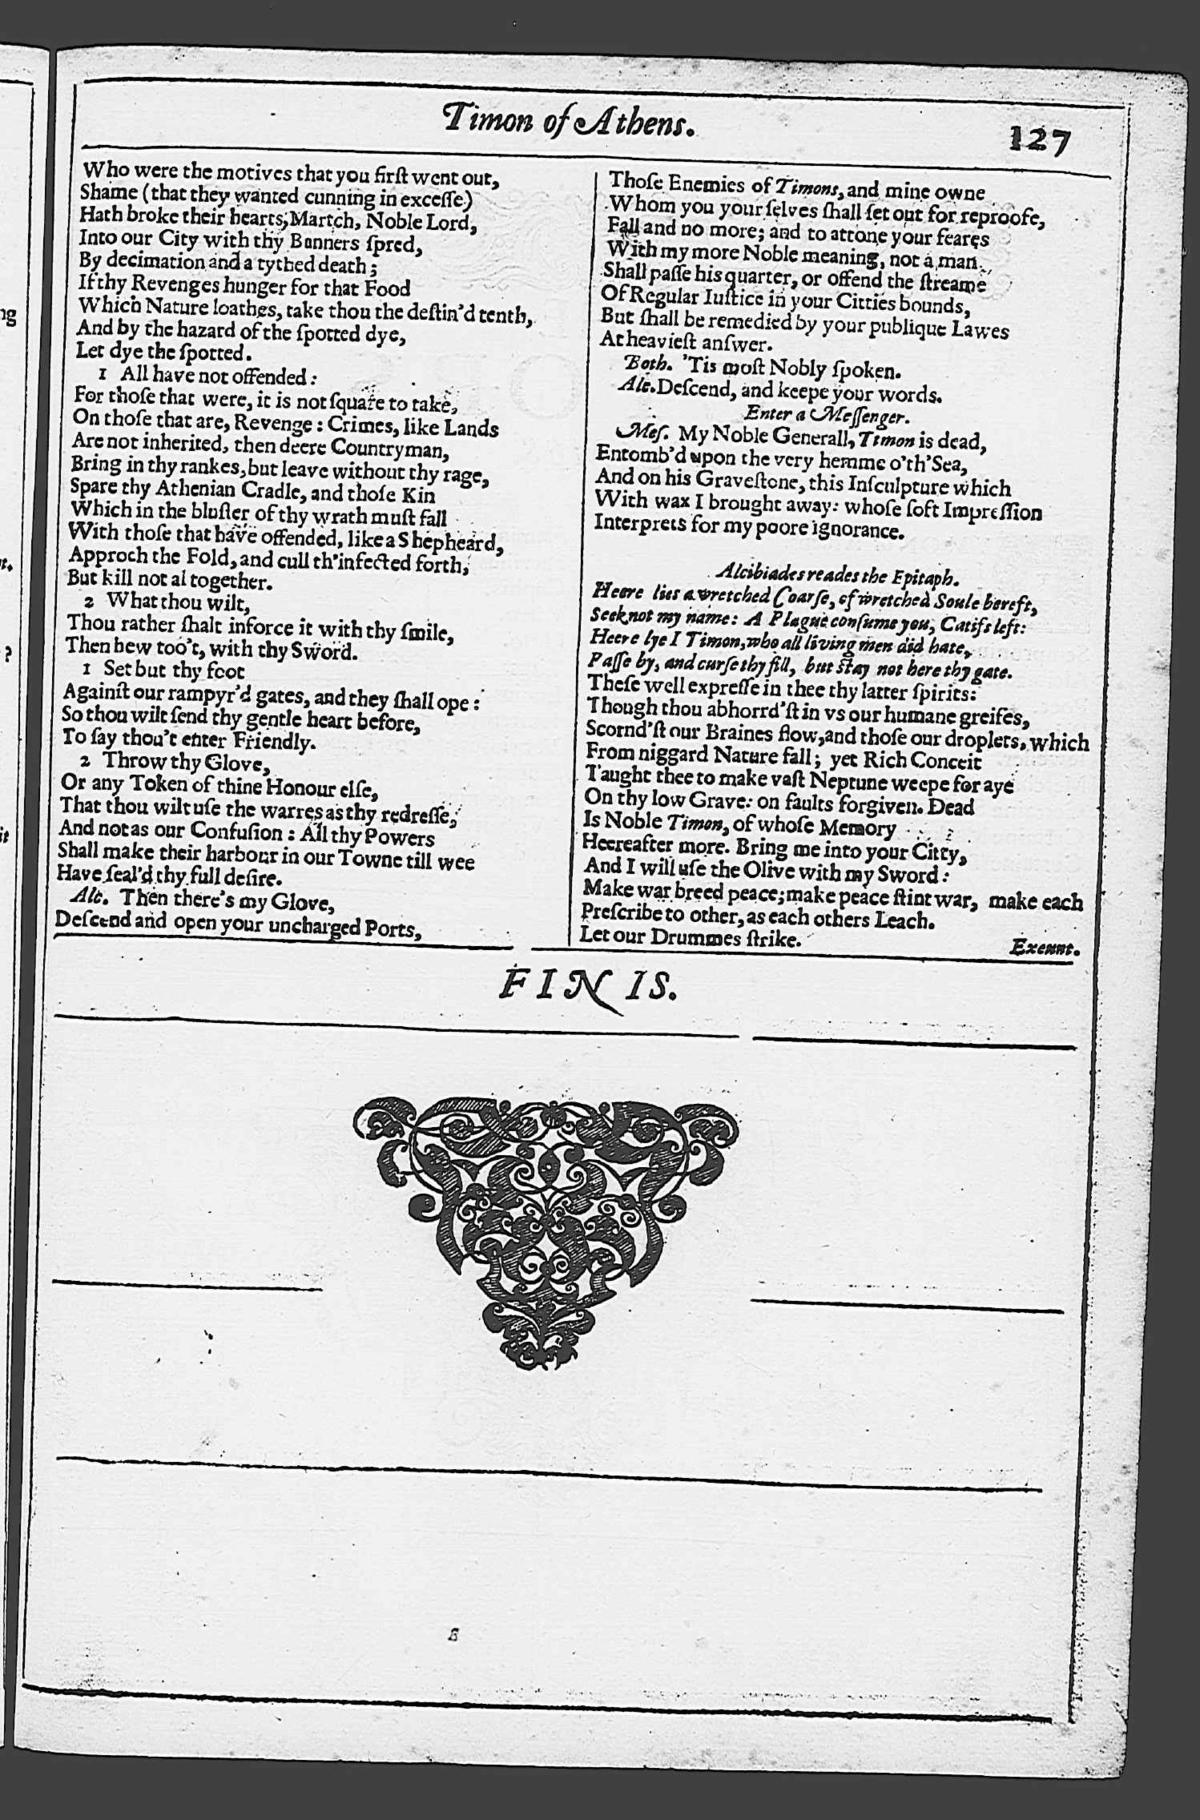 Timon of Athens.
127
Who were the motives that you firſt went out,
Shame (that they wanted cunning in exceſſe)
Hath broke their hearts; March, Noble Lord,
Into our City with thy Banners ſpred,
By decimation and a tythed death;
If thy Revenges hunger for that Food
Which Nature loathes, take thou the deſtin'd tenth,
And by the hazard of the ſpotted dye,
Let dye the ſpotted.
1 All have not offended:
For thoſe that were, it is not ſquare to take,
On thoſe that are, Revenge: Crimes, like Lands
Are not inherited, then deere Countryman,
Bring in thy rankes, but leave without thy rage,
Spare thy Athenian Cradle, and thoſe Kin
Which in the bluſter of thy wrath muſt fall
With thoſe that have offended, like a Shepheard,
Approch the Fold, and cull th'infected forth,
But kill not al together.
2 What thou wilt,
Thou rather ſhalt inforce it with thy ſmile,
Then hew too't, with thy Sword.
1 Set but thy foot
Againſt our rampyr'd gates, and they ſhall ope:
So thou wilt ſend thy gentle heart before,
To ſay thou't enter Friendly.
2 Throw thy Glove,
Or any Token of thine Honour elſe,
That thou wilt uſe the warres as thy redreſſe,
And not as our Confuſion: All thy Powers
Shall make their harbour in our Towne till wee
Have ſeal'd thy full deſire.
Alc. Then there's my Glove,
Deſcend and open your uncharged Ports,
Thoſe Enemies of Timons, and mine owne
Whom you your ſelves ſhall ſet out for reproofe,
Fall and no more; and to attone your feares
With my more Noble meaning, not a man
Shall paſſe his quarter, or offend the ſtreame
Of Regular Iuſtice in your Citties bounds,
But ſhall be remedied by your publique Lawes
At heavieſt anſwer.
Both. 'Tis moſt Nobly ſpoken.
Alc. Deſcend, and keepe your words.
Enter a Meſſenger.
Meſ. My Noble Generall, Timon is dead,
Entomb'd upon the very hemme o'th'Sea,
And on his Graveſtone, this Inſculpture which
With wax I brought away: whoſe ſoft Impreſſion
Interprets for my poore ignorance.
Alcibiades reades the Epitaph.
Heere lies a wretched Coarſe, of wretched Soule bereft,
Seek not my name: A Plague conſume you, Catifs left:
Heere lye I Timon, who all living men did hate,
Paſſe by, and curſe thy fill, but stay not here thy gate.
Theſe well expreſſe in thee thy latter ſpirits:
Though thou abhorrd'ſt in vs our humane greifes,
Scornd'ſt our Braines flow, and thoſe our droplets, which
From niggard Nature fall; yet Rich Conceit
Taught thee to make vaſt Neptune weepe for aye
On thy low Grave: on faults forgiven. Dead
Is Noble Timon, of whoſe Memory
Heereafter more. Bring me into your Citty,
And I will uſe the Olive with my Sword:
Make war breed peace; make peace ſtint war, make each
Preſcribe to other, as each others Leach.
Let our Drummes ſtrike.
Exeunt.
FINIS.